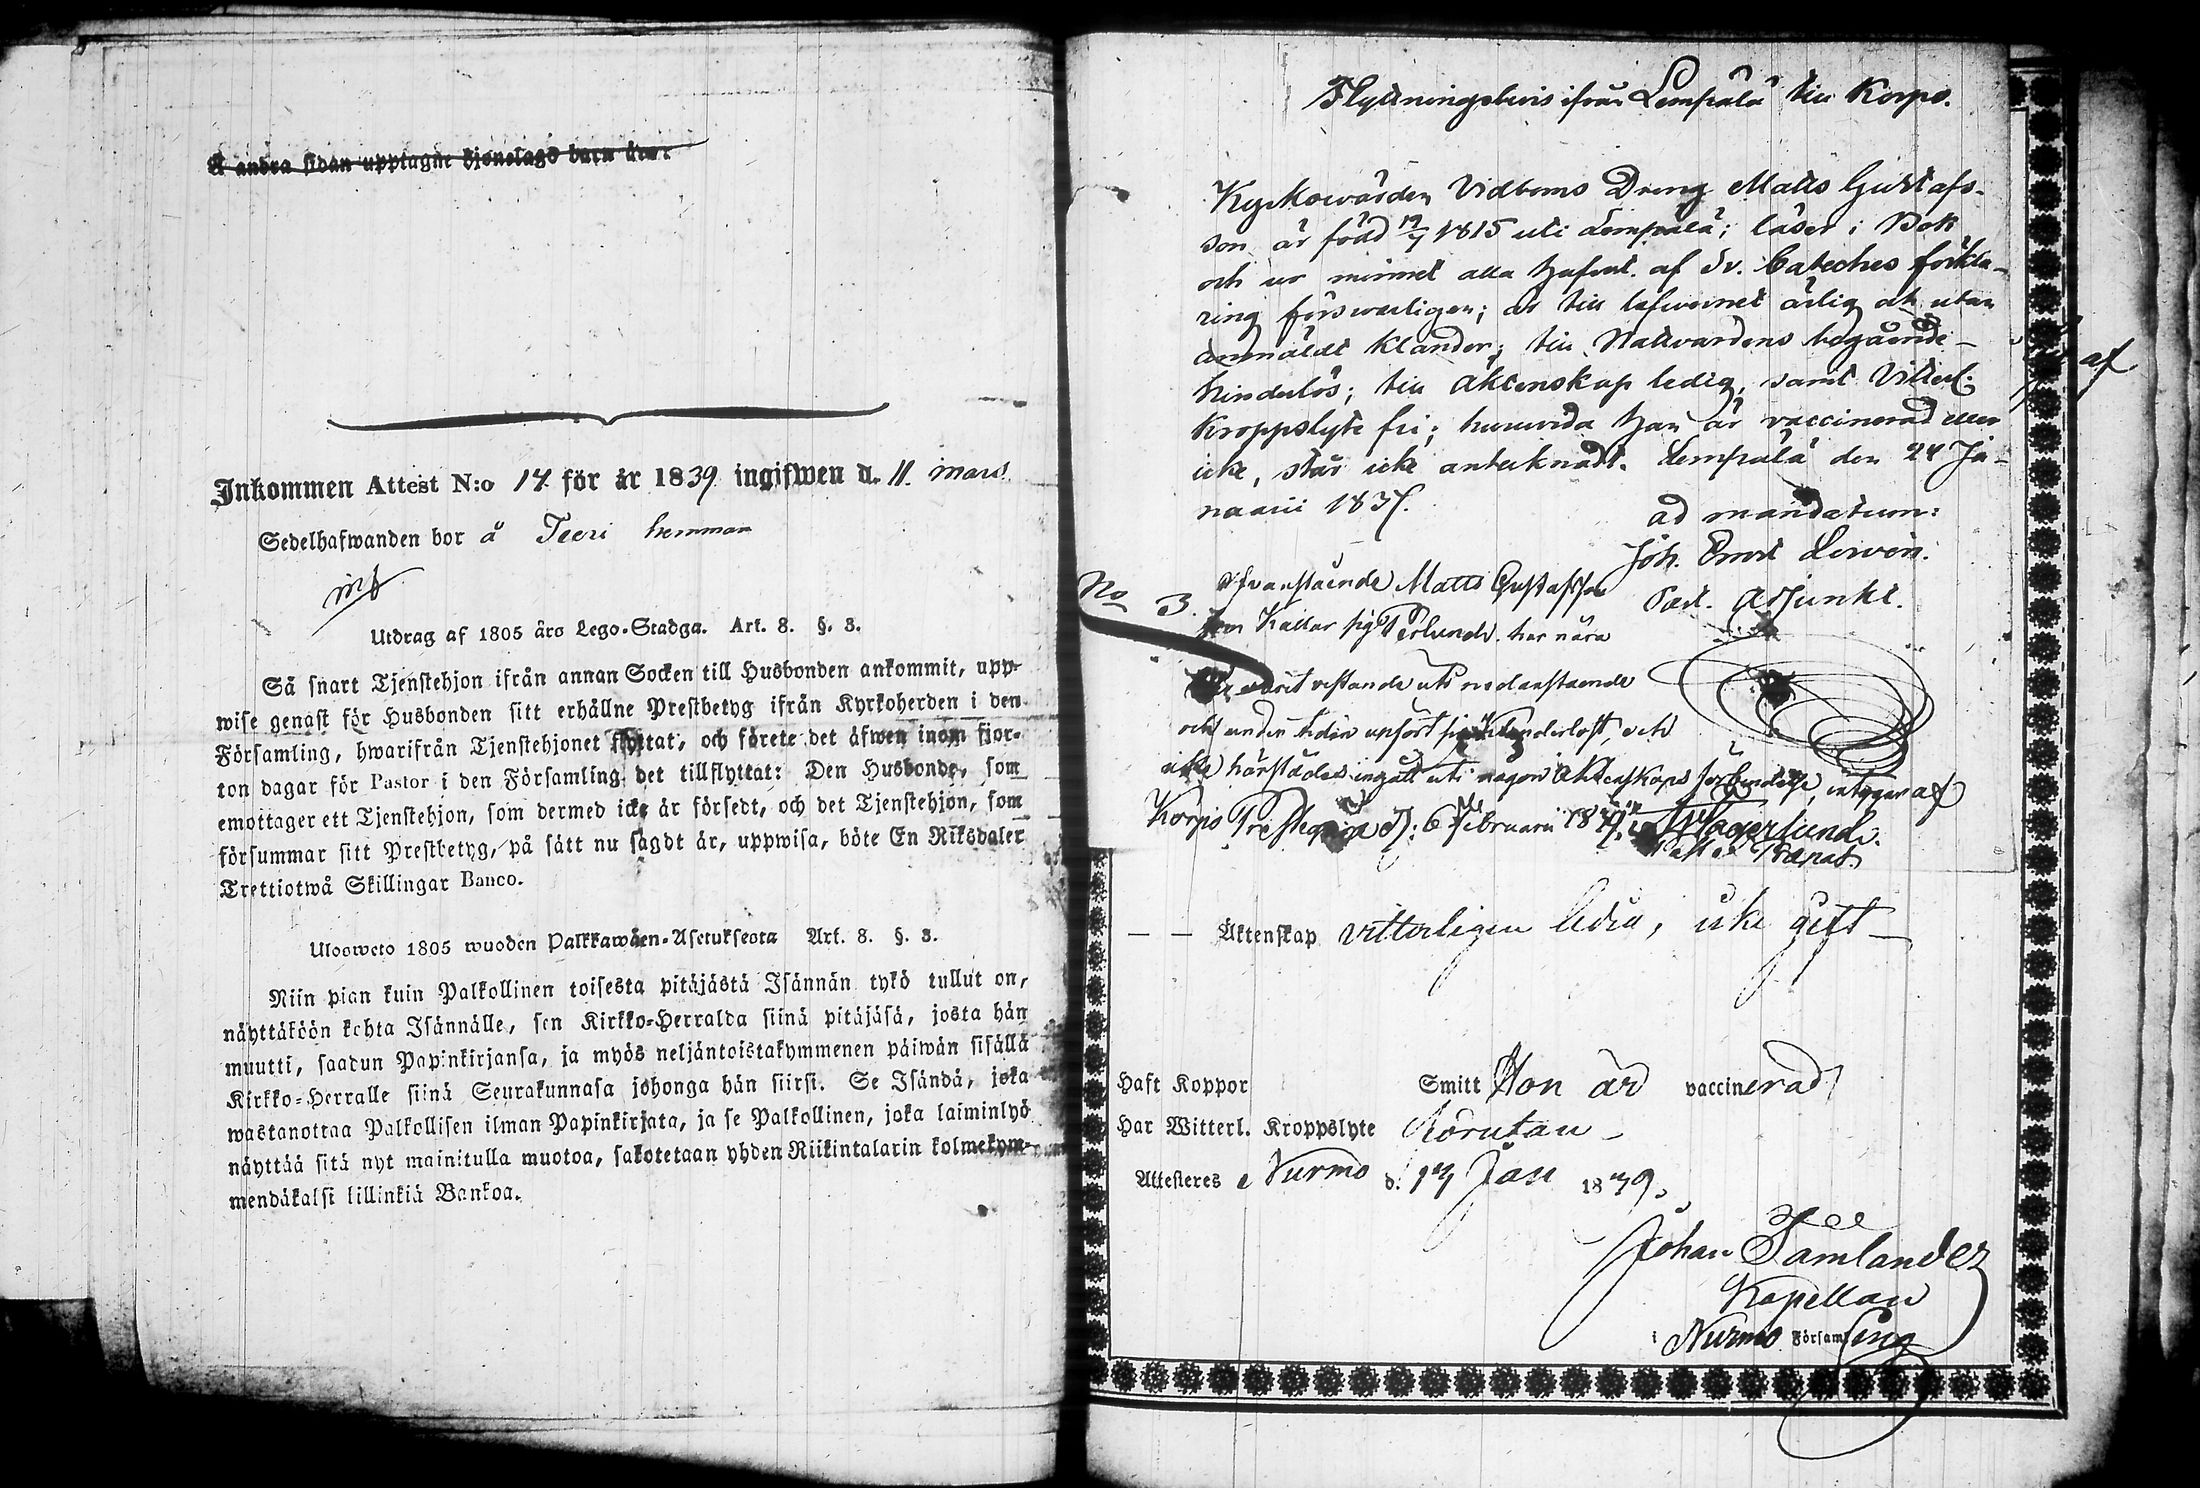 Å andra sidan upptagne tjenstags barn äro:
Inkommen Attest N:o 14 för år 1839 ingifwen d. 11. mars
Sedelhafwanden bor å Teeri hemman
Utdrag af 1805 års Lego-Stadga. Art. 8. §. 3.
Så snart Tjenstehjon ifrån annan Socken till Husbonden ankommit, upp-
wise genast för Husbonden sitt erhållne Prestbetyg ifrån Kyrkoherden i den
Församling, hwarifrån Tjenstehjonet flyttat, och förete det äfwen inom fjor-
ton dagar för Pastor i den Församling det tillflyttat: Den Husbonde, som
emottager ett Tjenstehjon, som dermed icke är försedt, och det Tjenstehjon, som
försummar sitt Prestbetyg, på sätt nu sagdt är, uppwisa, böte En Riksdaler
Trettiotwå Skillingar Banco.
Ulosweto 1805 wuoden Palkkawäen-Asetuksesta Art. 8. §. 3.
Niin pian kuin Palkollinen toisesta pitäjästä Isännän tykö tullut on,
näyttäköön kohta Isännälle, sen Kirkko-Herralda siinä pitäjäsä, josta hän
muutti, saadun Papinkirjansa, ja myös neljäntoistakymmenen päiwän sisällä
Kirkko-Herralle siinä Seurakunnasa johonga hän siirsi. Se Isändä, joka
wastanottaa Palkollisen ilman Papinkirjata, ja se Palkollinen, joka laiminlyö
näyttää sitä nyt mainitulla muotoa, sakotetaan yhden Riikintalarin kolmekym-
mendäkaksi killinkiä Bankoa.
Flyttningsbevis ifrån Lempälä till Korpo.
Kyrkowärden Vidboms Dreng Matts Gustafs-
son är född 19/7 1815 uti Lempälä; läser i Bok
och ur minnet alla hufvst. af Sv. Cateches förkla-
ring försvarligen; är till lefvernet ärlig och utan
anmäldt klander; till Nattvardens begående
hinderlös; till äktenskap ledig, samt Vitterl.
kroppslyte fri; huruvida han är vaccinerad eller
icke, står icke antecknadt. Lempälä den 24 Ja-
nuarii 1837.
ad mandatum:
Joh. Ernst
Past. Adjunkt.
No 3. Ofvanstående Matts Gustafsson
som kallar sig Perlund har nära
varit vistande uti nedanstående
ort under tiden uppfört sig klanderlöst, och
icke härstädes ingått uti någon äktenskaps förbindelse, intygar
af
Korpo Prestegård d: 6 Februarii 18
Lagerlund.
Äktenskap vitterligen ledig, icke gift
Haft Koppor Smitt Hon är vaccinerad
Har Witterl. Kroppslyte förutan
Attesteres i Nurmo d. 14 Jan 1839.
Johan
Kapellan
i Nurmo Församling